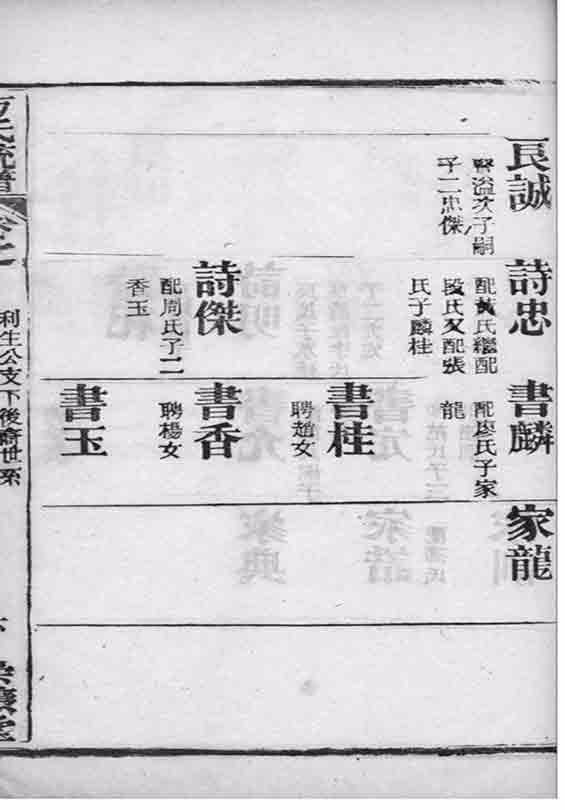 良誠
賢溢次子嗣
子二忠傑
詩忠
配黃氏繼配
段氏又配張
氏子麟桂
詩傑
配周氏子二
香玉
書麟
配廖氏子家
龍
書桂
聘趙女
書香
聘楊女
書玉
家龍
氏統譜
利生公支下後裔世系